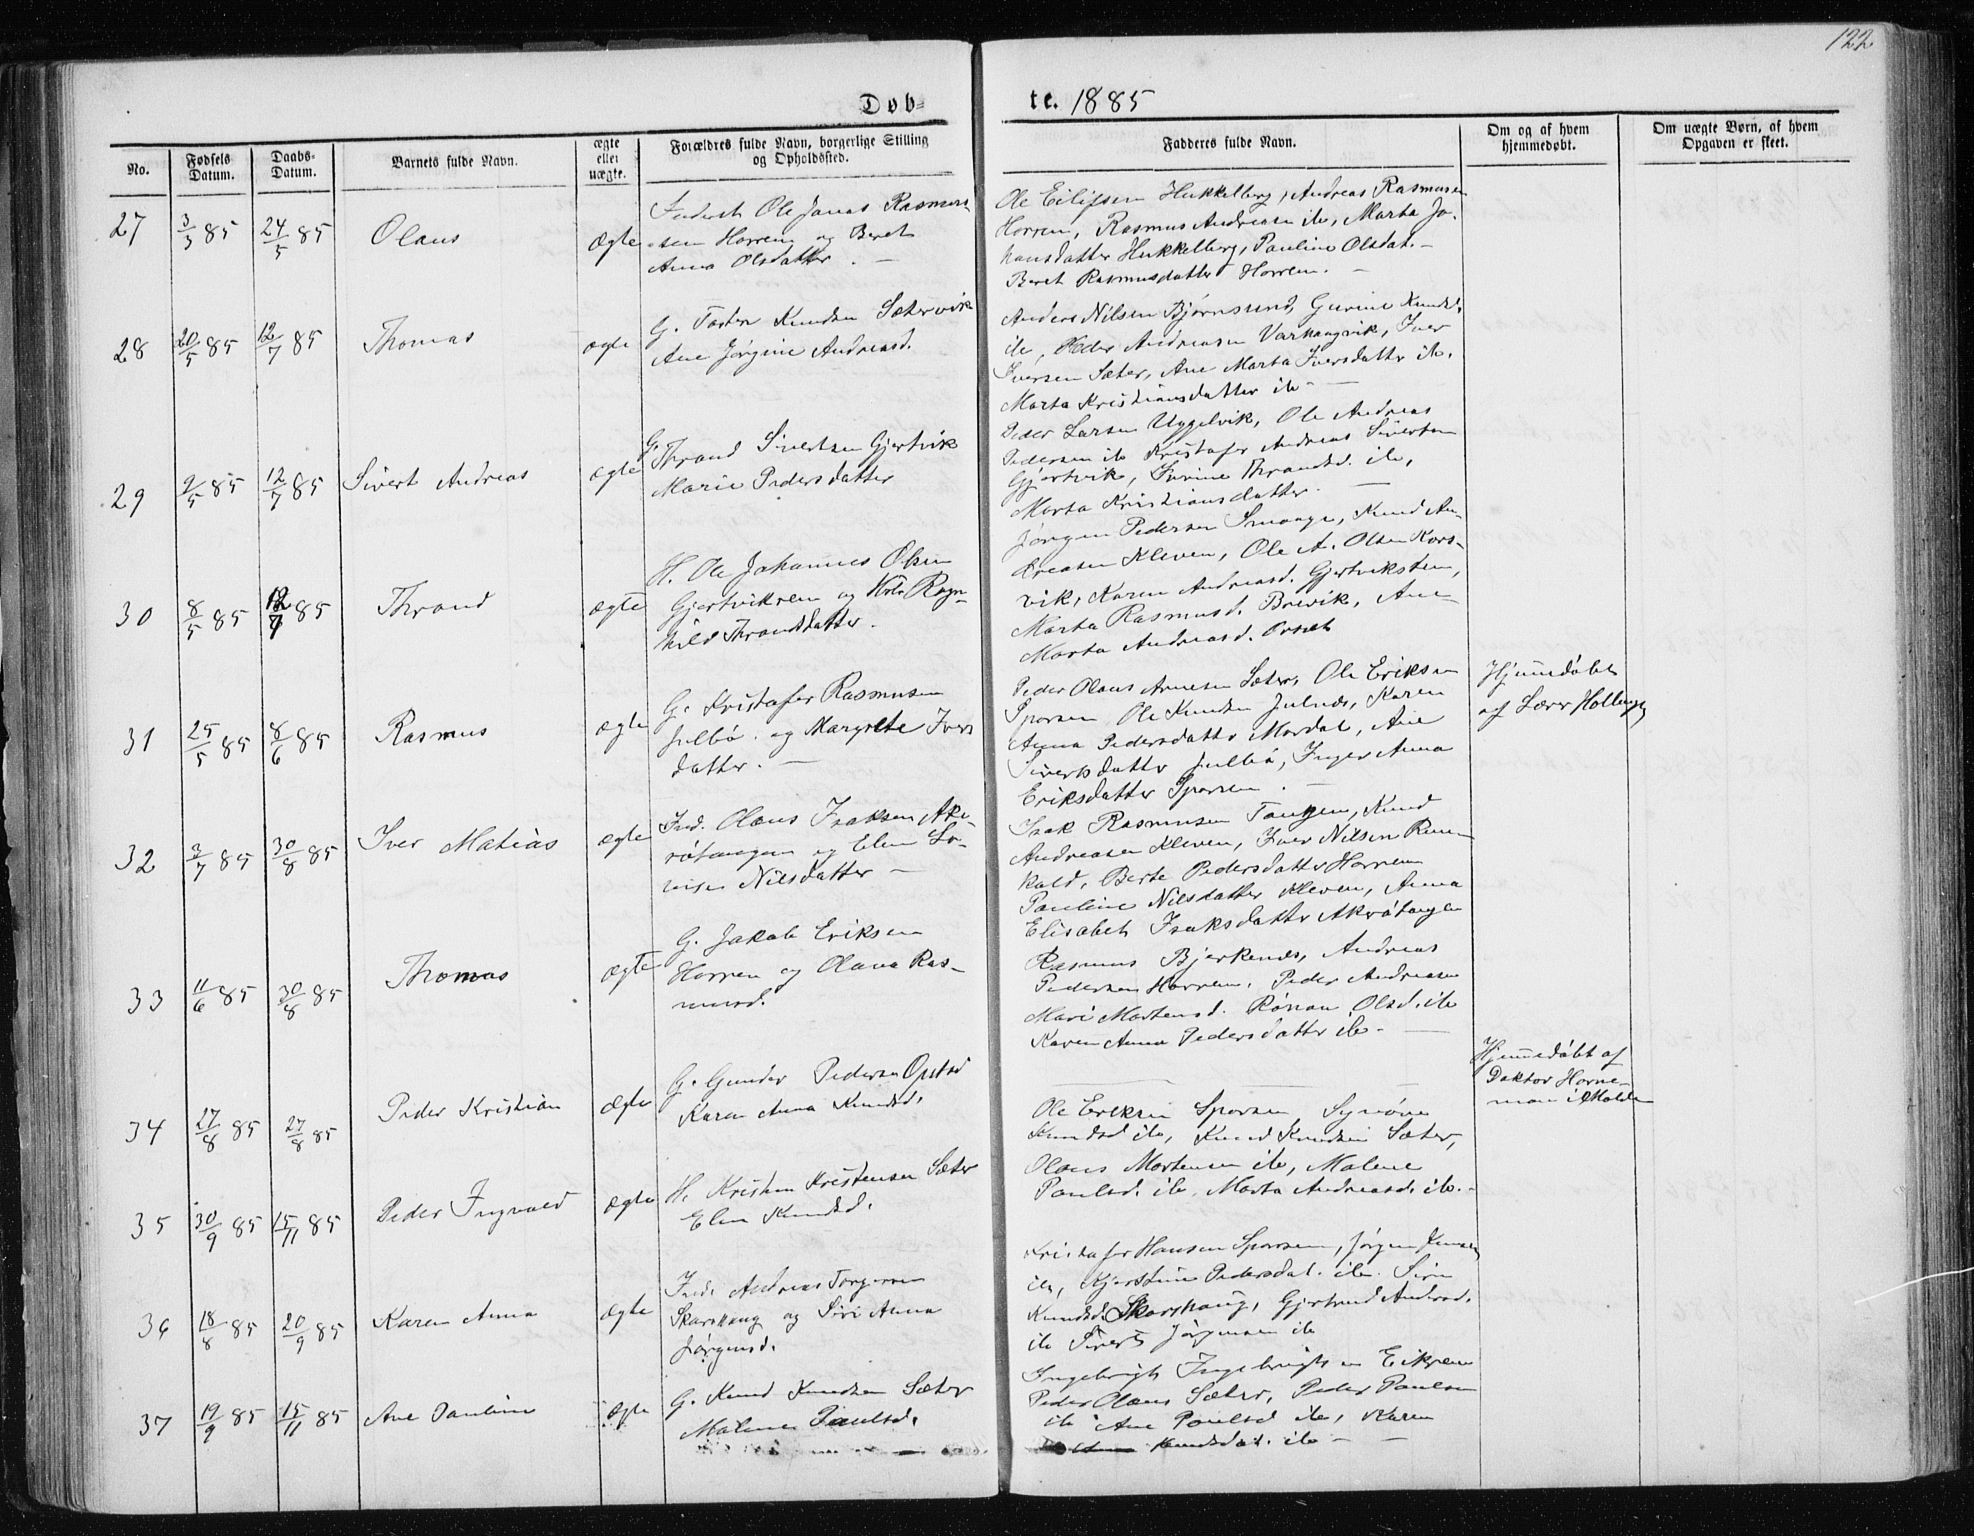 122
Døb-
te. 1885
No.
Fødsels Datum.
Daabs- Datum.
Barnets fulde Navn.
ægte eller uægte.
Forældres fulde Navn, borgerlige Stilling og Opholdssted.
Fadderes fulde Navn.
Om og af hvem hjemmedøbt.
Om uægte Børn, af hvem Opgaven er skeet.
27
3/3 85
24/5 85
Olaus
Ægte
Ole Jonas Rasmus-
sen Horrem og Beret
Anna Olsdatter. —
Ole Eilifsen Hukkelberg, Andreas Rasmusen
Horrem, Rasmus Andreasen ib, Marta Jo-
hansdatter Hukkelberg, Pauline Olsdat.
Beret Rasmusdatter Horrem. —
28
20/5 85
12/7 85
Thomas
ægte
G. Torsten Knudsen Sætervik
Ane Jørgine Andreasd.
Anders Nilsen Bjørnsund, Gurine Knudsd.
ib, Peder Andreasen Varhaugvik, Iver
Iversen Sæter, Ane Marta Iversdatter ib.
Marta Kristiansdatter ib —
29
9/5 85
12/7 85
Sivert Andreas
ægte
G. Thrond Sivertsen Gjertvik
Marie Pedersdatter
Peder Larsen Uggelvik, Ole Andreas
Pedersen ib Kristofer Andreas Sivertsen
Gjertvik, Throndsd. ib,
Marta Kristiansdatter. —
30
8/5 85
12/7 85
Thrond
ægte
H. Ole Johannes Olsen
Gjertvikrem og Kone Ragn-
hild Throndsdatter.
Jørgen Pedersen Smaage, Knud An-
dreasen Kleven, Ole A. Olsen Kors-
vik, Karen Andreasd. Gjertvikrem,
Marta Rasmusd. Brevik, Ane
Marta Andreasd. Orset
31
25/5 85
8/6 85
Rasmus
ægte
G. Kristofer Rasmusen
Julbø. og Margrete Ivers
datter. —
Peder Olaus Arnesen Sæter, Ole Eriksen
Sporsem, Ole Knudsen Julnes, Karen
Anna Pedersdatter Mordal, Ane
Sivertsdatter Julbø, Inger Anna
Eriksdatter Sporsem. —
Hjemmedøbt
af Lærer
32
3/7 85
30/8 85
Iver Matias
ægte
Ind. Olaus Isaksen Ake-
røtangen og Elen Lo-
vise Nilsdatter —
Isak Rasmusen Tangen, Knud
Andreasen Kleven, Iver Nilsen Rin-
kald, Berte Pedersdatter Horrem
Pauline Nilsdatter Kleven, Anna
Elisabet Isaksdatter Akerøtangen
33
11/6 85
30/8 85
Thomas
ægte
G. Jakob Eriksen
Horrem og Olava Ras-
musd.
Rasmus Bjerkenes, Andreas
Pedersen Horrem, Peder Andreasen
Mari Mortensd. Olsd. ib
Karen Anna Pedersdatter ib. —
34
27/8 85
27/8 85
Peder Kristian
ægte
G. Gunder Pedersen Opstad
Karen Anna Knudsd.
Hjemmedøbt af
Doktor Horne-
man i Molde
Ole Eriksen Sporsem, Synøve
Knudsd ib, Knud Knudsen Sæter,
Olaus Mortensen ib, Malene
Paulsd. ib, Marta Andreasd. ib. —
35
30/9 85
15/11 85
Peder Ingvald
ægte
H. Kristen Kristensen Sæter
Elen Knudsd.
36
18/8 85
20/9 85
Karen Anna
ægte
Ind. Andreas Torgersen
Skarshaug og Siri Anna
Jørgensd.
Kristofer Hansen Sporsem, Jørgen Jensen
ib, Kjerstine Pedersdat. ib. Siri
Knudsd. Skarshaug, Gjertrud Andersd.
ib Sivert Jørgensen ib
37
19/9 85
15/11 85
Ane Pauline
ægte
G. Knud Knudsen Sæter
Malene Paulsd.
Ingebrigt Ingebrigtsen Eikrem
Peder Olaus Sæter, Peder Paulsen
ib Ane Paulsd ib, Karen
Knudsdat. ib —